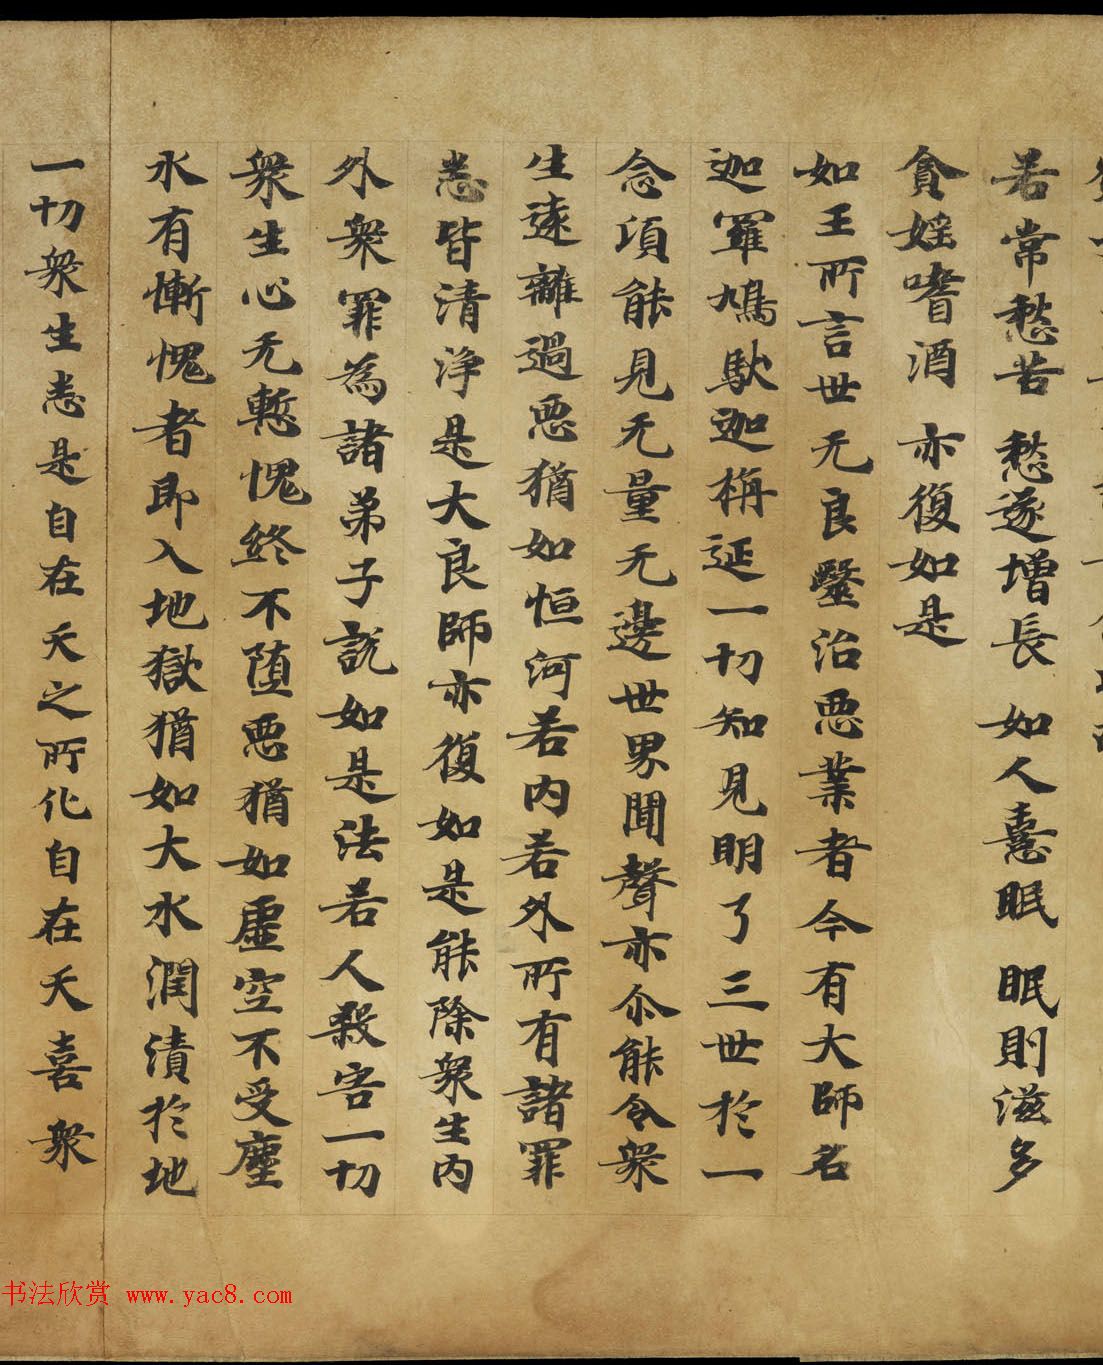 若常愁苦 愁遂增長 如人憙眠 眠則滋多
貪婬嗜酒 亦復如是
如王所言世无良毉治惡業者今有大師名
迦羅鳩馱迦旃延一切知見明了三世於一
念項能見无量无邊世界聞聲亦尒能令衆
生遠離過惡猶如恒河若内若外所有諸罪
悉皆清淨是大良師亦復如是能除衆生内
外衆罪為諸弟子說如是法若人殺害一切
衆生心无慙愧終不墮惡猶如虛空不受塵
水有慚愧者即入地獄猶如大水潤漬於地
一切衆生悉是自在天之所化自在天喜衆
书法欣赏 www.yac8.com